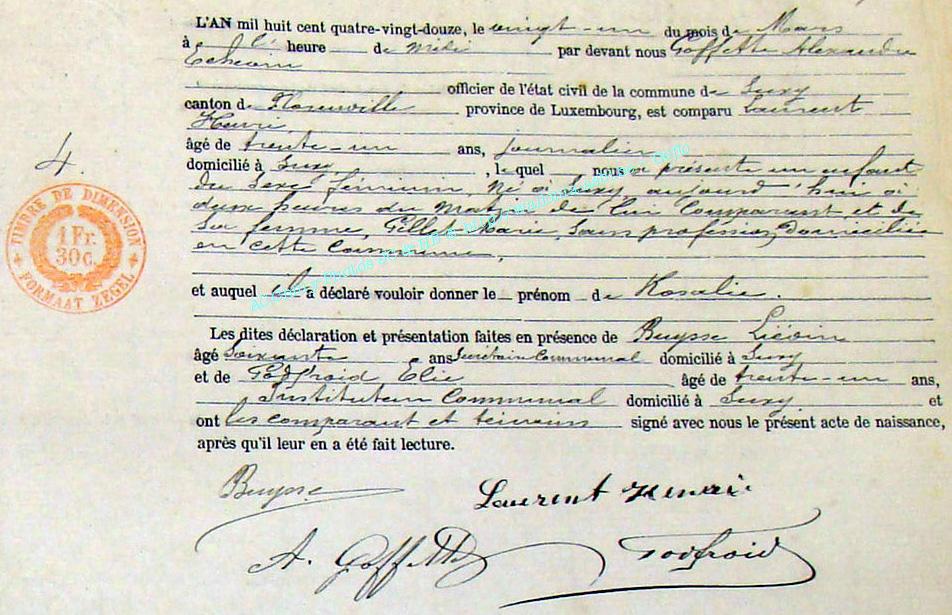 L'AN mil huit cent quatre-vingt-douze, le vingt-un du mois de Mars
à l' heure de midi par devant nous Goffette Alexandre
Echevin
officier de l'état civil de la commune de Suxy
canton de Florenville province de Luxembourg, est comparu Laurent
Henri
âgé de trente-un ans, journalier
domicilié à Suxy, lequel nous a présenté un enfant
du Sexe féminin, Né à Suxy aujourd'hui à
deux heures du matin de lui Comparant et de
Sa femme, Gillet Marie, Sans profession, Domiciliée
en cette Commune,
et auquel il a déclaré vouloir donner le prénom de Rosalie.
Les dites déclaration et présentation faites en présence de Buysse Liévin
âgé Soixante ans Secrétaire Communal domicilié à Suxy
et de Godfroid Elie âgé de trente-un ans,
Instituteur Communal domicilié à Suxy et
ont les comparant et témoins signé avec nous le présent acte de naissance,
après qu'il leur en a été fait lecture.
4.
TIMBRE DE DIMENSION
1 Fr.
30 C.
FORMAAT ZEGEL
Buysse
Laurent Henri
A. Goffette
Godfroid